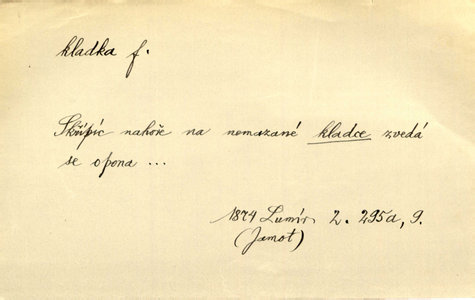 kladka f.
Skřípíc nahoře na nemazané kladce zvedá
se opona ...
1874 Lumír 2. 295a, 9.
(Jamot)